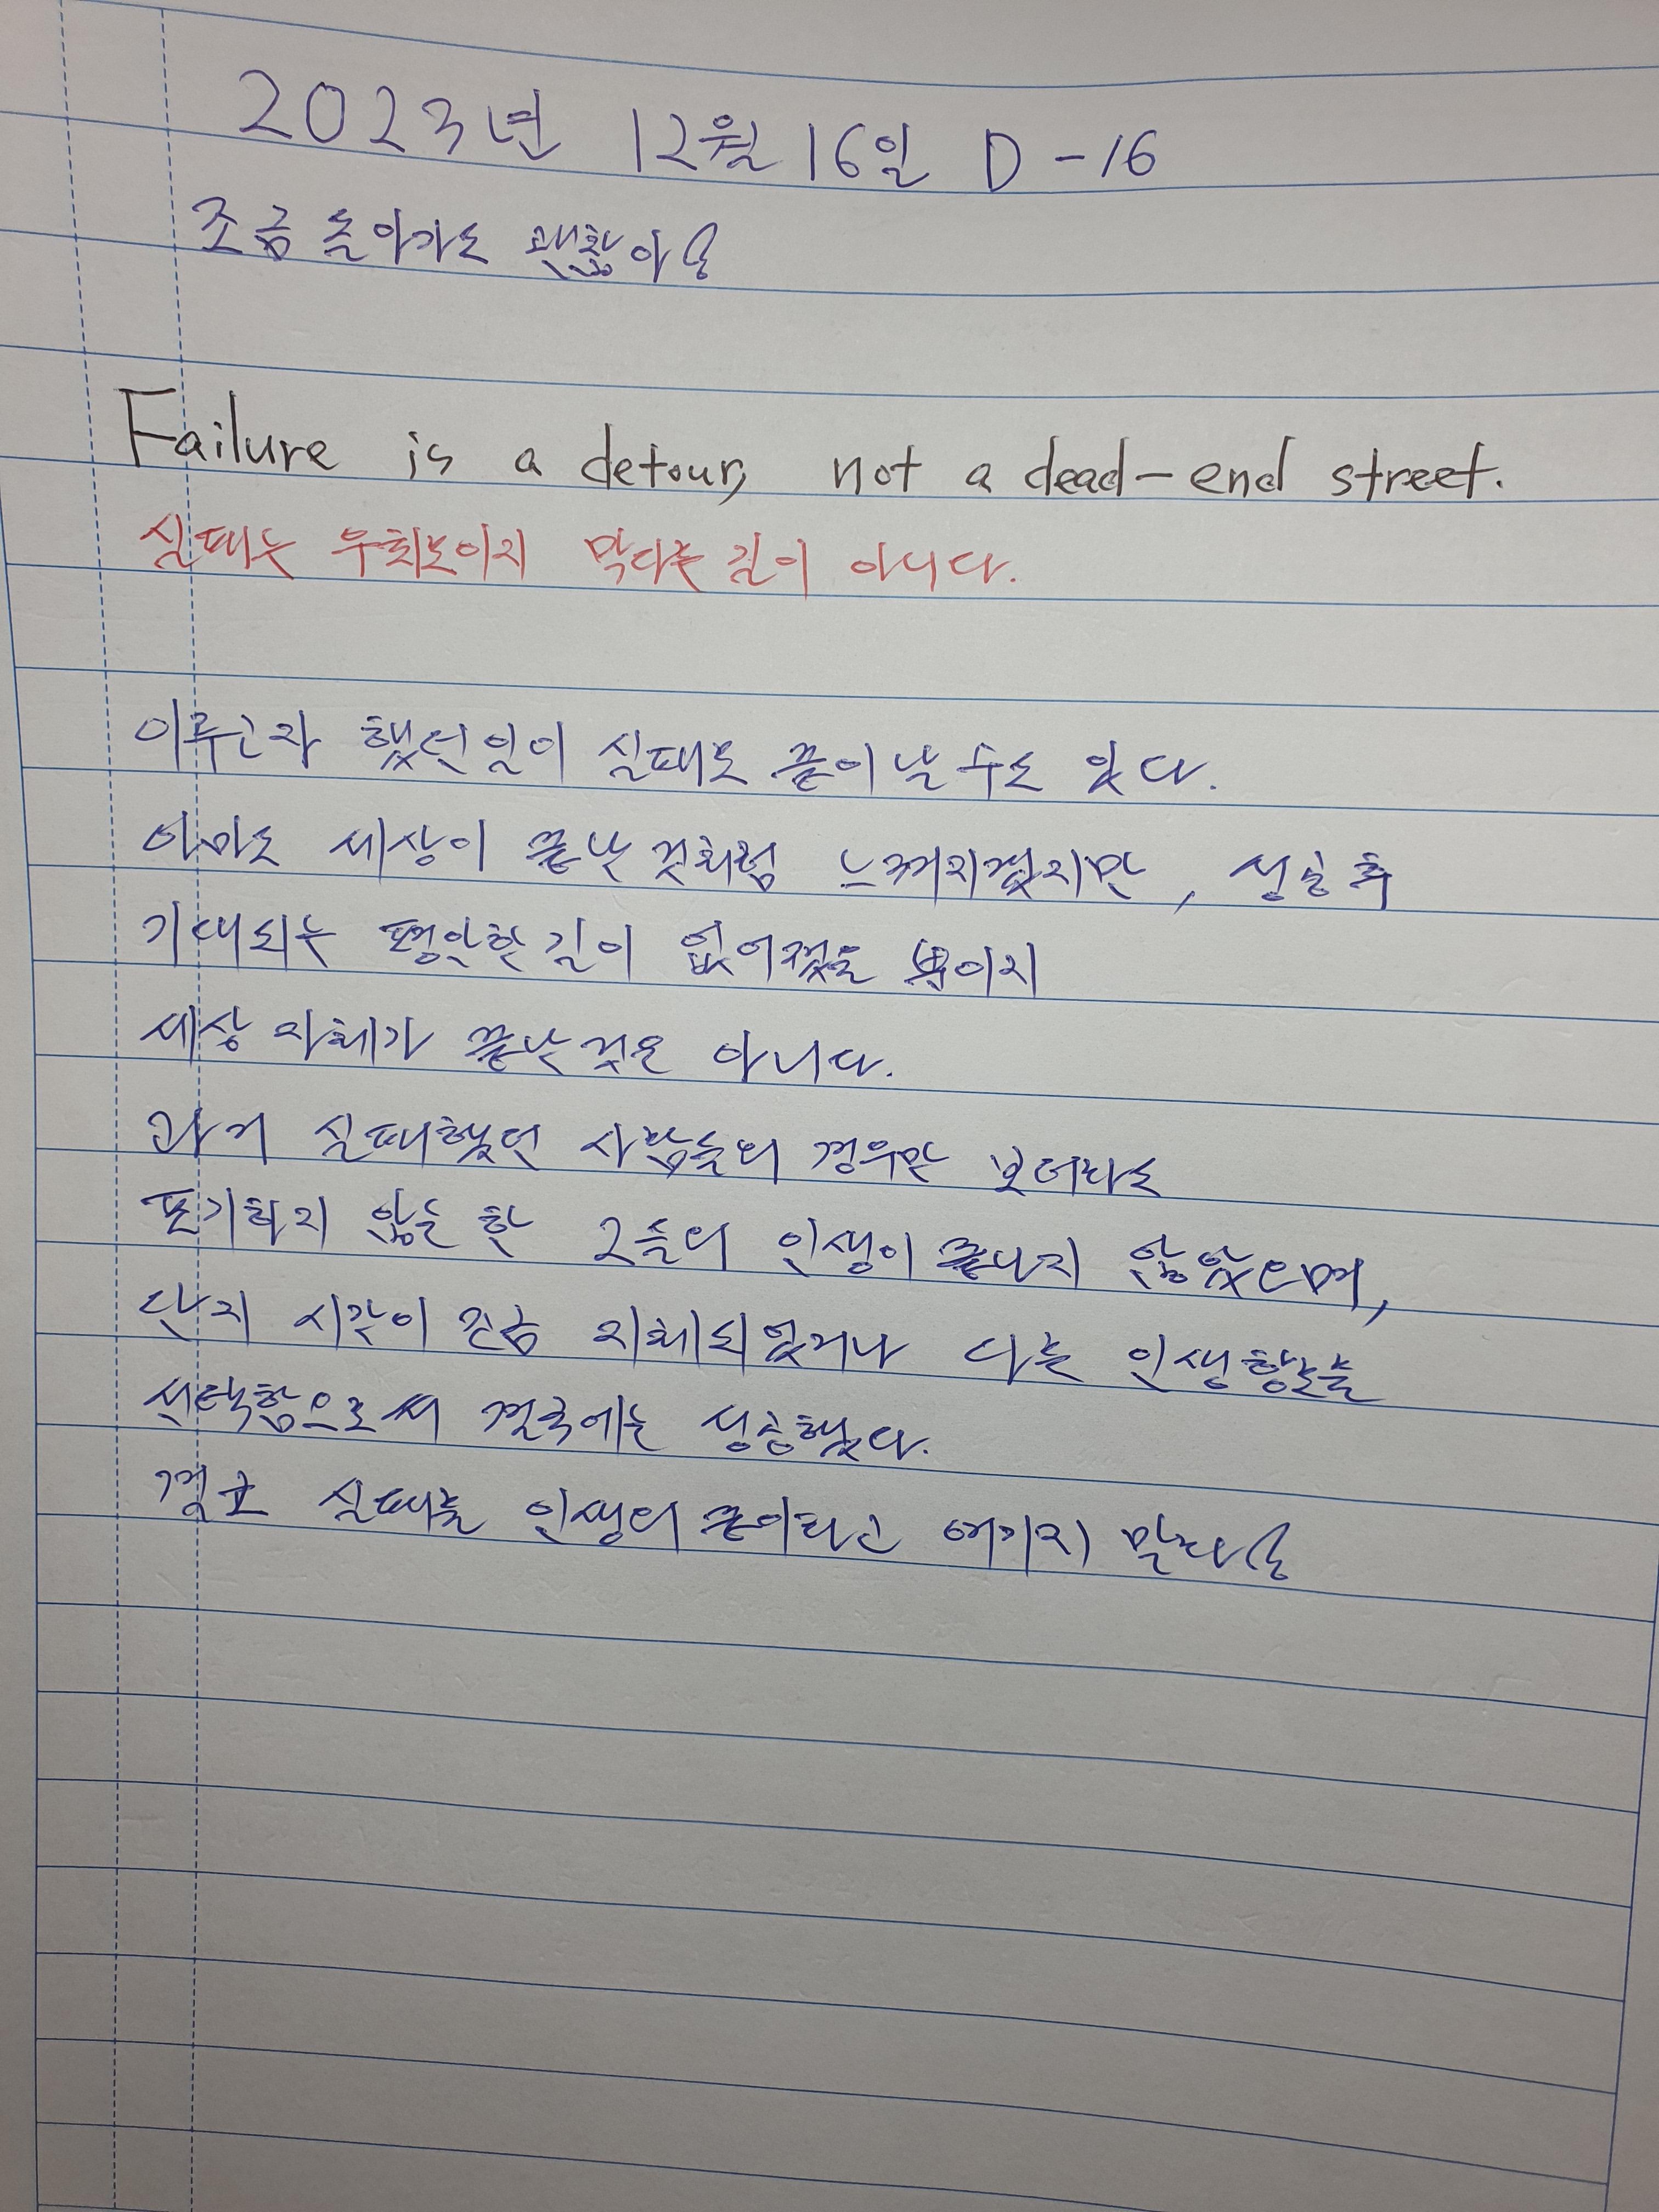 2023년 12월 16일 D-16
조금 돌아가도 괜찮아!
Failure is a detour, not a dead-end street.
실패는 우회로이지 막다른 길이 아니다.
이루고자 했던 일이 실패로 끝이 날 수도 있다.
아마도 세상이 끝난 것처럼 느껴지겠지만, 성공 후
기대되는 평안한 길이 없어졌을 뿐이지
세상 자체가 끝난 것은 아니다.
과거 실패했던 사람들의 경우만 보더라도
포기하지 않는 한 그들의 인생이 끝나지 않았으며,
단지 시간이 조금 지체되었거나 다른 인생항로를
선택함으로써 결국에는 성공했다.
결코 실패를 인생의 끝이라고 여기지 말라!